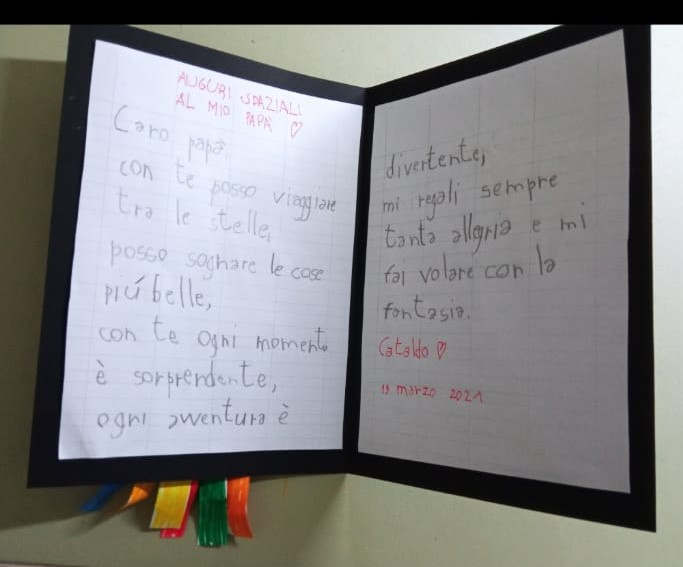 AUGURI SPAZIALI
AL MIO PAPÀ ♡
Caro papà,
con te posso viaggiare
tra le stelle,
posso sognare le cose
più belle,
con te ogni momento
è sorprendente,
ogni avventura è
divertente,
mi regali sempre
tanta allegria e mi
fai volare con la
fantasia.
Cataldo ♡
19 marzo 2021